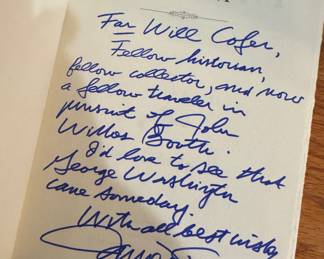 For Will Cofer,
Fellow historian,
fellow collector, and now
a fellow traveler in
pursuit of John
Wilkes Booth.
I'd love to see that
George Washington
cane someday.
With all best wishes